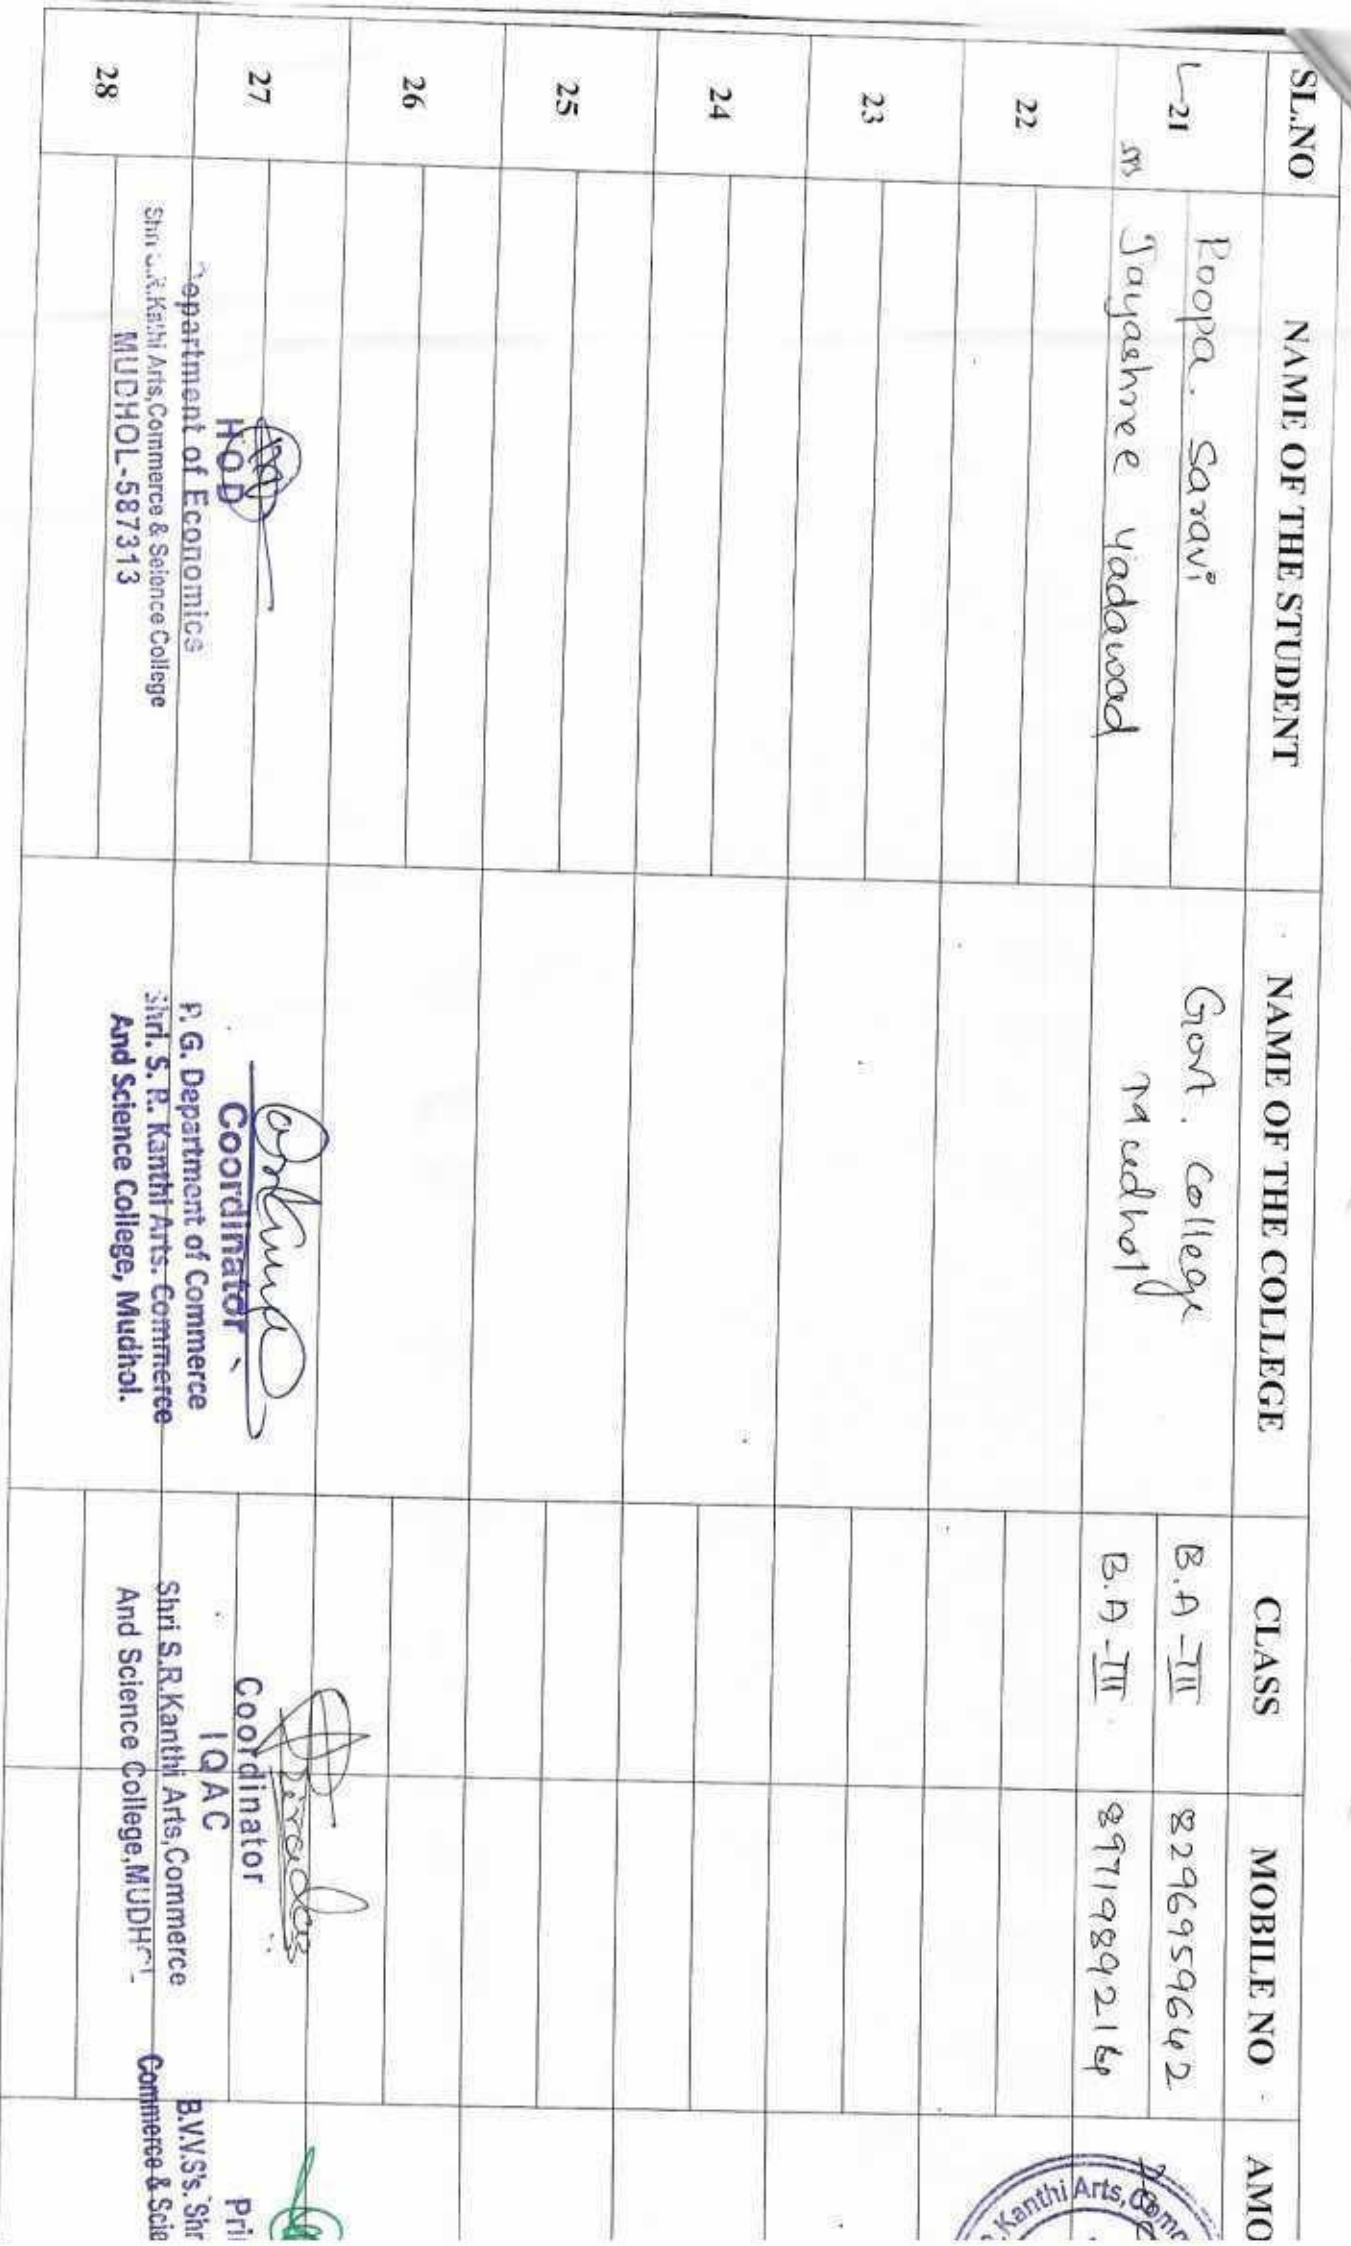 SL.NO NAME OF THE STUDENT NAME OF THE COLLEGE CLASS MOBILE NO AMO
21 Roopa. Saravi Govt. College B.A-III 8296959642
Jayashree Yadawad Mudhol B.A-III 8971989214
22
23
24
25
26
27
28
HOD
Department of Economics
Kathi Arts,Commerce & Science College
MUDHOL-587313
Coordinator
P. G. Department of Commerce
Shri. S. R. Kanthi Arts. Commerce
And Science College, Mudhol.
Coordinator
IQAC
Shri S.R.Kanthi Arts,Commerce
And Science College,MUDHOL
Pri
B.V.V.S's. Shr
Commerce & Scie
Kanthi Arts, Comm